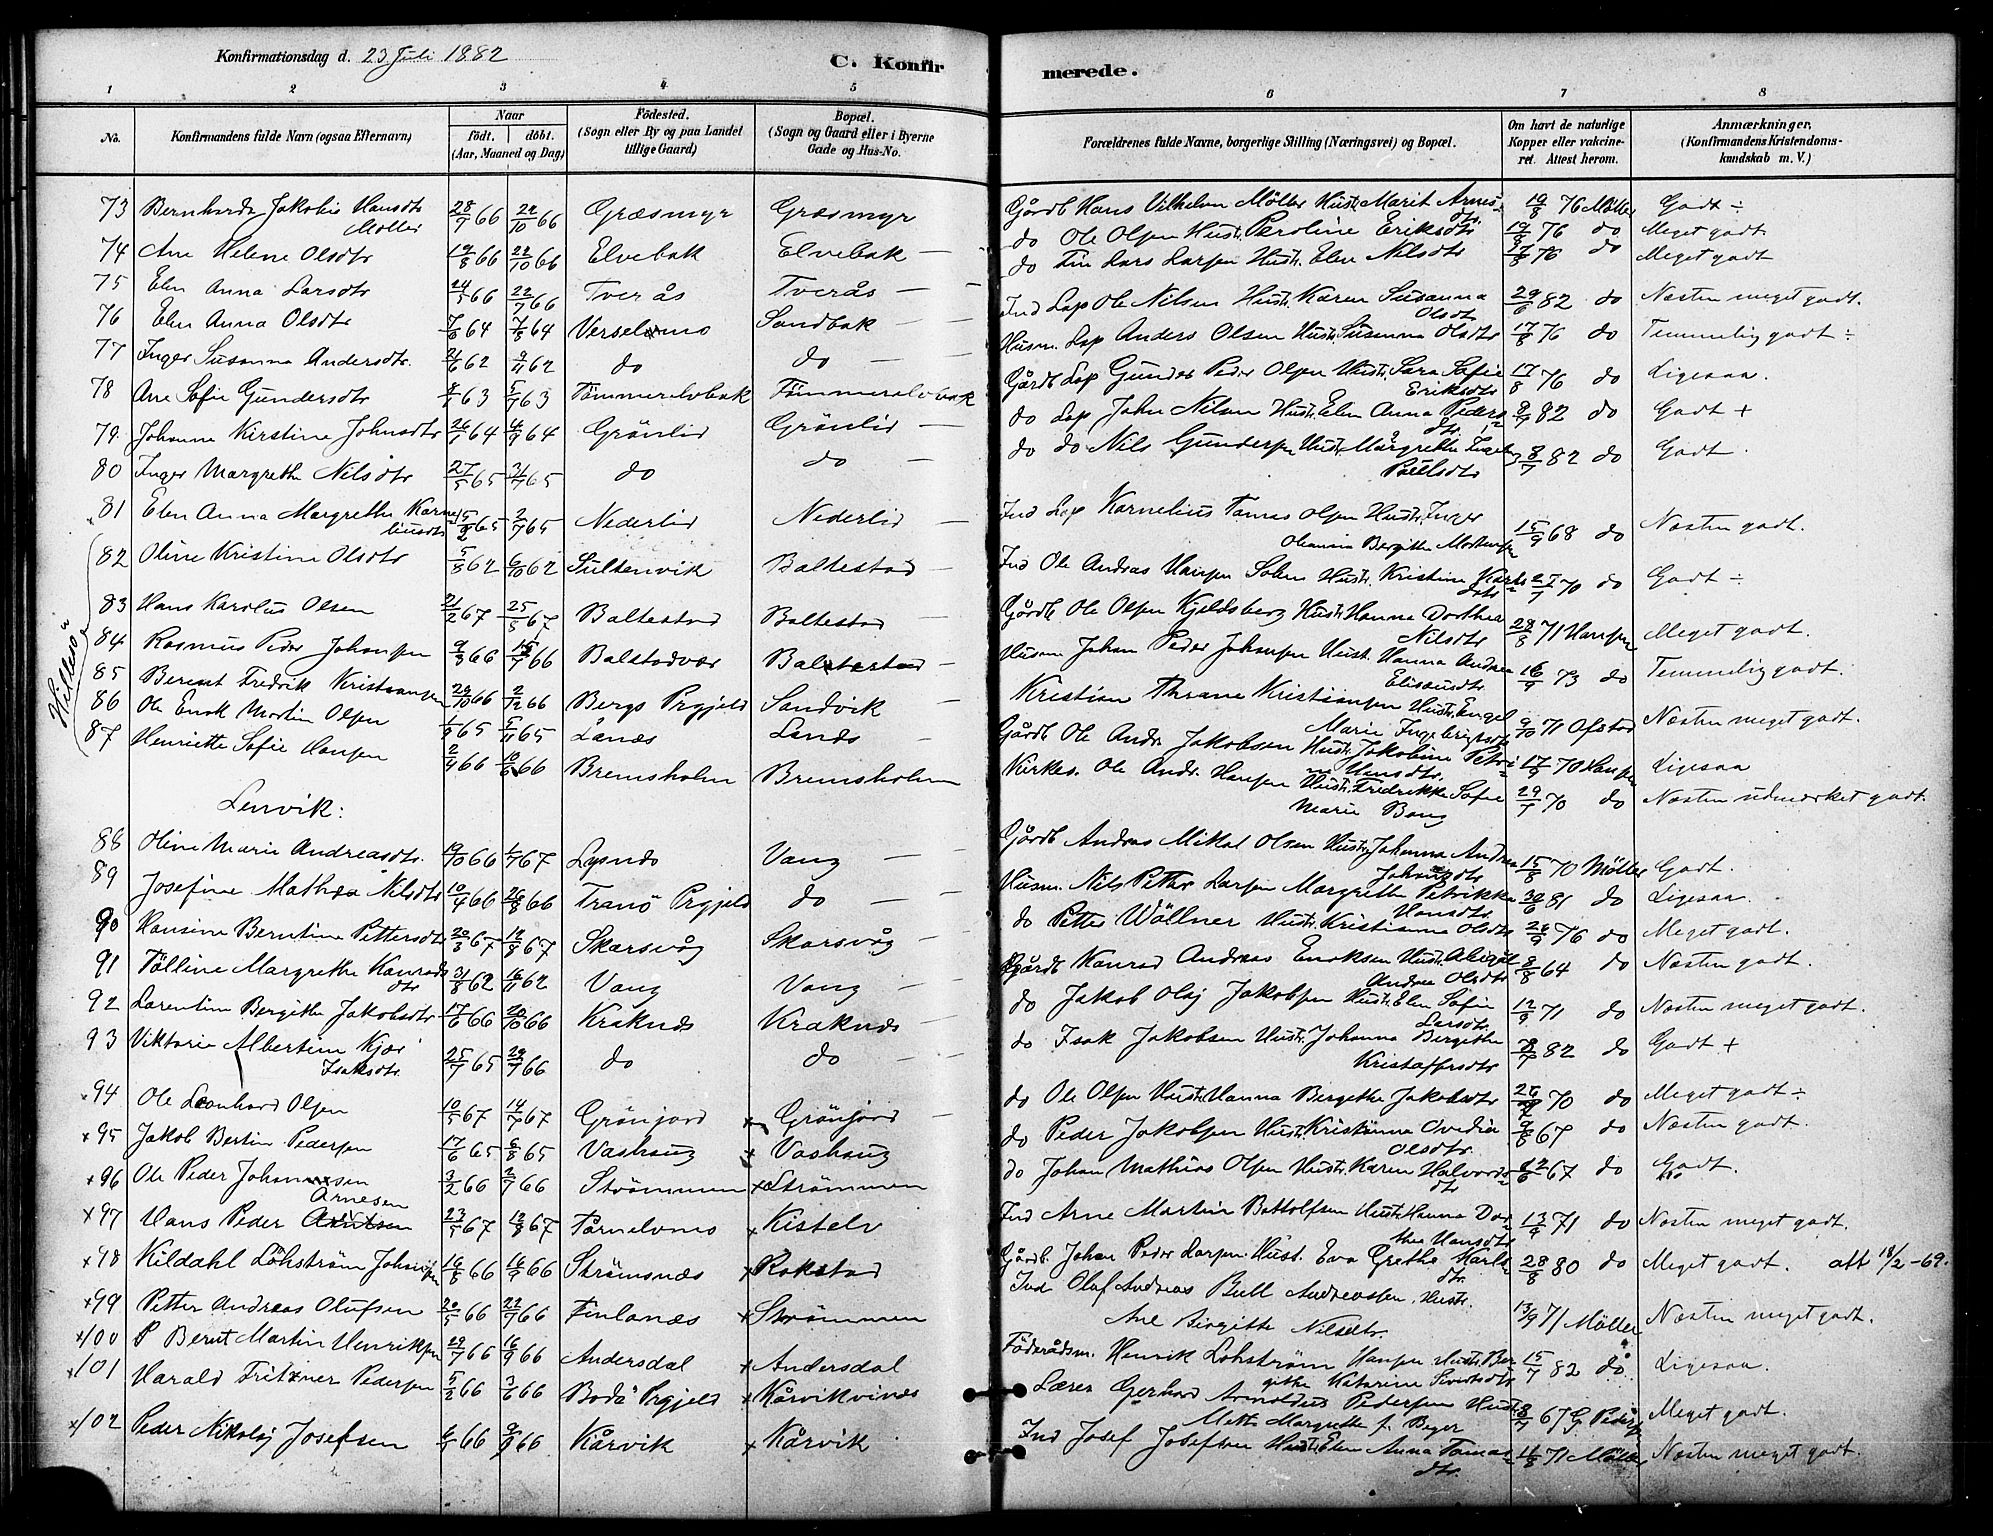 Konfirmationsdag d. 23 Juli 1882
C. Konfirmerede.
1 2 3 4 5 6 7 8
No. Konfirmandens fulde Navn (ogsaa Efternavn) Naar födt. döbt. (Aar, Maaned og Dag) Födested. (Sogn eller By og paa Landet tillige Gaard) Bopæl. (Sogn og Gaard eller i Byerne Gade og Hus-No. Forældrenes fulde Navne, borgerlige Stilling (Næringsvei) og Bopæl. Om havt de naturlige Kopper eller vakcineret. Attest herom. Anmærkninger. (Konfirmandens Kristendomskundskab m. V.)
73 Bernharde Jakobie Hansdtr Møller 28/7 66 22/10 66 Græsmyr Græsmyr Gårdb Hans Vilhelm Møller Hustr. Marit Arnesdtr. 19/8 76 Møller Godt ÷
74 Ane Helene Olsdtr 19/8 66 22/10 66 Elvebak Elvebak — do Ole Olsen Hustr. Karoline Eriksdtr 19/8 76 do Meget godt
75 Elen Anna Larsdtr 24/5 66 22/7 66 Tverås Tverås — do Fin Lars Larsen Hustr. Elen Nilsdtr 76 do Meget godt
76 Elen Anna Olsdtr 7/6 64 7/8 64 Verselvmo Sandbak — Ind Lap Ole Nilsen Hustr. Karen Susanna Olsdtr 29/6 82 do Næsten meget godt.
77 Inger Susanna Andersdtr. 62 62 do do — Husm. Lap Anders Olsen Hustr. Susanna Olsdtr 17/8 76 do Temmelig godt ÷
78 Ane Sofie Gundersdtr 63 5/7 63 Tømmerelvbak Tømmerelvbak Gårdb Lap Gunder Peder Olsen Hustr. Sara Sofie Eriksdtr 17/8 76 do Ligesaa.
79. Johanne Kirstine Johnsdtr 26/1 64 4/9 64 Grönlid Grönlid — do Lap John Nilsen Hustr. Elen Anna Pedersdtr. 82 do Godt +
80 Inger Margrethe Nilsdtr 27/5 65 31/7 65 do do — do do Nils Gundersen Hustr. Margrethe Ingeb. Pålsdtr 8/7 82 do Godt
81 Elen Anna Margrethe Karneliusdtr 65 2/7 65 Nederlid Nederlid — Ind Lap Kornelius Tomas Olsen Hustr. Inger Oleanna Bergithe Mortensen 15/9 68 do Næsten godt.
Hillesö
82 Oline Kristine Olsdtr 5/8 62 6/10 62 Sultenvik Baltestad — Ind Ole Andreas Hansen Hustr. Kristine dtr 27/7 70 do Godt ÷
83 Hans Karolus Olsen 21/2 67 25/5 67 Baltestad Baltestad — Gårdb Ole Olsen Kjeldsberg Hustr. Hanna Dorthea Nilsdtr 28/8 71 Hansen Meget godt.
84 Rasmus Peder Johansen 9/3 66 15/7 66 Balstadvær Baltestad — Husm Johan Peder Johansen Hust. Hanna Andrea Eliseusdtr. 16/9 73 do Temmelig godt.
85 Berent Fredrik Kristiansen 29/10 66 2/12 66 Bergs Prgjeld Sandvik — Kristian Thrane Kristiansen Hustr. Engel Marie Ingebrigtsdtr 9/10 71 Ofstad Næsten meget godt.
86 Ole Enok Martin Olsen 65 5/11 65 Lånæs Lånæs — Gårdb Ole Andr. Jakobsen Hustr. Jakobine Petrine Hansdtr. 17/9 70 Hansen Ligesaa
87 Henriette Sofie Hansen 2/4 66 10/6 66 Bremsholm Bremsholm Kirkes. Ole Andr. Hansen Hustr. Fredrikke Sofie Marie Bang 29/7 70 do Næsten udmærket godt.
Lenvik:
88 Oline Marie Andreasdtr. 19/10 66 1/7 67 Lysnes Vang — Gårdb Andreas Mikal Olsen Hustr. Johanna Andrea Johansdtr 15/8 70 Møller Godt.
89 Josefine Mathea Nilsdtr 10/4 66 26/8 66 Tranö Prgjeld do — Husm. Nils Petter Larsen Margrethe Petrikka Hansdtr. 30/6 81 do Ligesaa.
90 Hansine Berntine Pettersdtr 20/3 67 12/8 67 Skarsvåg Skarsvåg — do Petter Wöllner Hustr. Kristianna Olsdtr 26/9 76 do Meget godt.
91 Tölline Margrethe Konradsdtr 31/8 62 16/11 62 Vang Vang — Gårdb Konrad Andreas Enoksen Hustr. Abigal Andrea Olsdtr 8/8 64 do Næsten godt.
92 Larentine Bergithe Jakobsdtr 17/6 66 20/10 66 Kraknes Kraknes — do Jakob Olaj Jakobsen Hustr. Elen Sofie Larsdtr. 12/9 71 do Næsten meget godt.
93 Viktorie Albertine Kjær Isaksdtr. 25/7 65 29/7 66 do do — do Isak Jakobsen Hustr. Johanna Bergithe Kristoffersdtr 82 do Godt +
×94 Ole Leonhard Olsen 10/5 67 14/7 67 Grönjord × Grönjord — do Ole Olsen Hustr. Hanna Bergethe Jakobsdtr 70 do Meget godt ÷
×95 Jakob Bertin Pedersen 17/6 65 6/8 65 Vashaug × Vashaug do Peder Jakobsen Hustr. Kristianna Ovedia Olsdtr. 9/8 67 do Næsten godt.
×96 Ole Peder Johannesen 3/2 66 2/7 66 Strömmen × Strömmen do Johan Mathias Olsen Hustr. Karen Halvorsdtr 67 do Godt.
×97 Hans Peder Arnesen 23/5 67 12/8 67 Tårnelvmo × Kistelv Ind Arne Martin Bottolfsen Hustr. Hanna Dorthea Hansdtr 13/9 71 do Næsten meget godt.
×98 Kildahl Löhström Johansen 16/8 66 16/9 66 Strömsnæs × Rokstad Gårdb. Johan Peder Larsen Hust. Eva Grethe Karlsdtr. 28/8 80 do Meget godt. att 18/2 -69.
×99 Petter Andreas Olufsen 20/5 66 22/7 66 Finlanæs × Strömmen Ind Olaf Andreas Bull Andreassen Hustr. Ane Birgitte Nilsdtr. 13/9 71 Møller Næsten meget godt.
×100 P Bernt Martin Henriksen 29/7 66 16/9 66 Andersdal × Andersdal Föderådsm. Henrik Lohström Hansen Hustr. Bergithe Katarine Sivertsdtr 15/7 82 do Ligesaa.
×101 Harald Fritzner Pedersen 5/2 66 3/6 66 Bodö Prgjeld × Kårvikvinds Lærer Gerhard Arnoldus Pedersen Hustr. Mette Margrethe f. Beyer 8/7 67 G Peders Meget godt.
×102 Peder Nikolaj Josefsen 66 9/9 66 Kårvik × Kårvik Ind Josef Josefsen Hustr. Elen Anna Tomasdtr. 11/8 71 Møller Næsten meget godt.